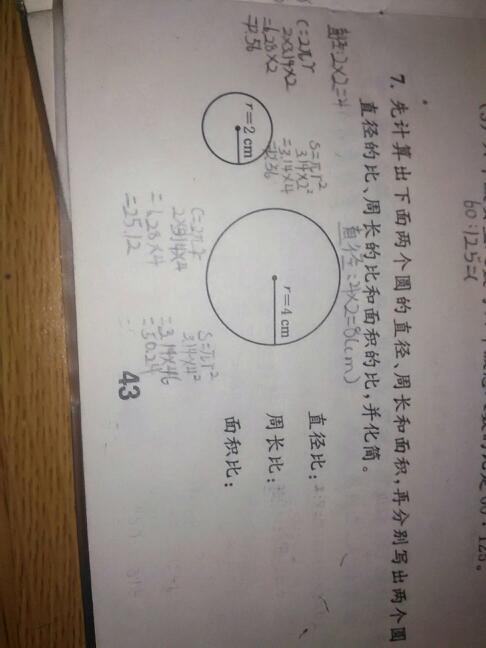 7. 先计算出下面两个圆的直径、周长和面积,再分别写出两个圆
直径的比、周长的比和面积的比,并化简。
直径:2×2=4
C=2πr
2×3.14×2
=6.28×2
=12.56
r=2 cm
S=πr²
3.14×2²
=3.14×4
=12.56
直径:4×2=8(cm)
r=4 cm
C=2πr
2×3.14×4
=6.28×4
=25.12
S=πr²
3.14×4²
=3.14×16
=50.24
直径比:
周长比:
面积比:
43
60:125=(